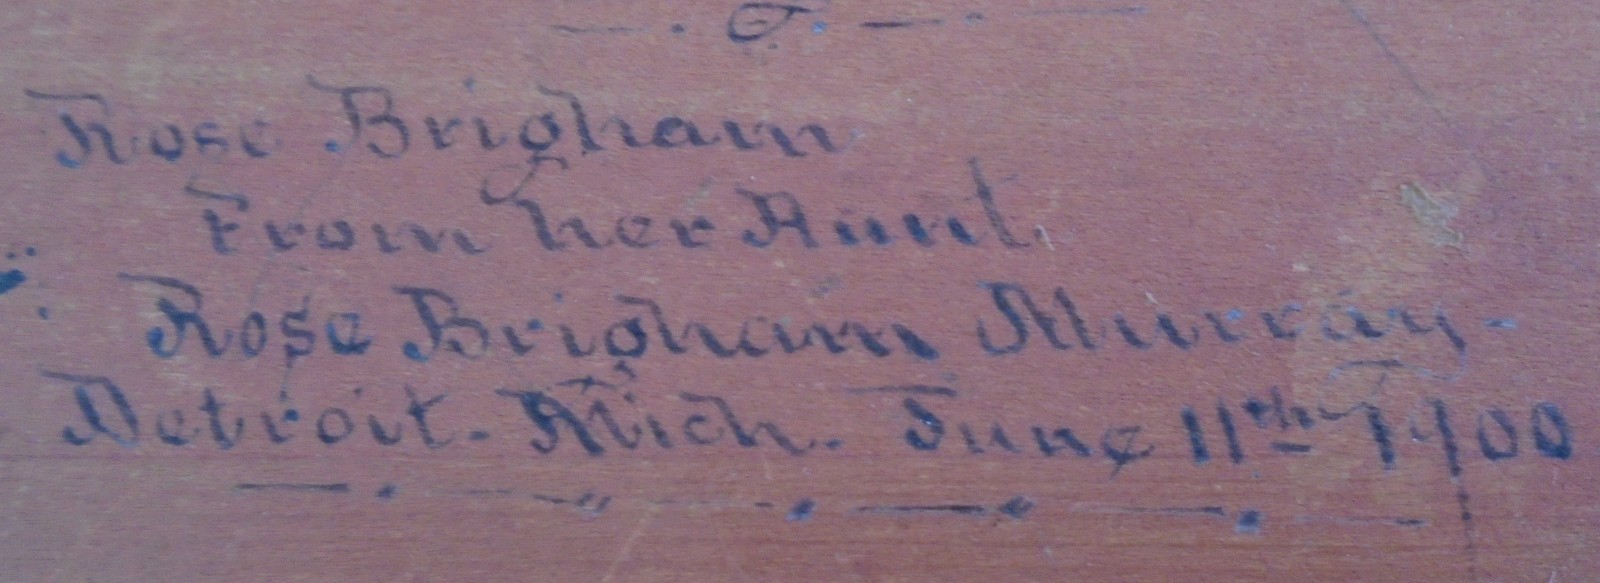 Rose Brigham
From her Aunt.
Rose Brigham Murray-
Detroit. Mich. June 11th 1900